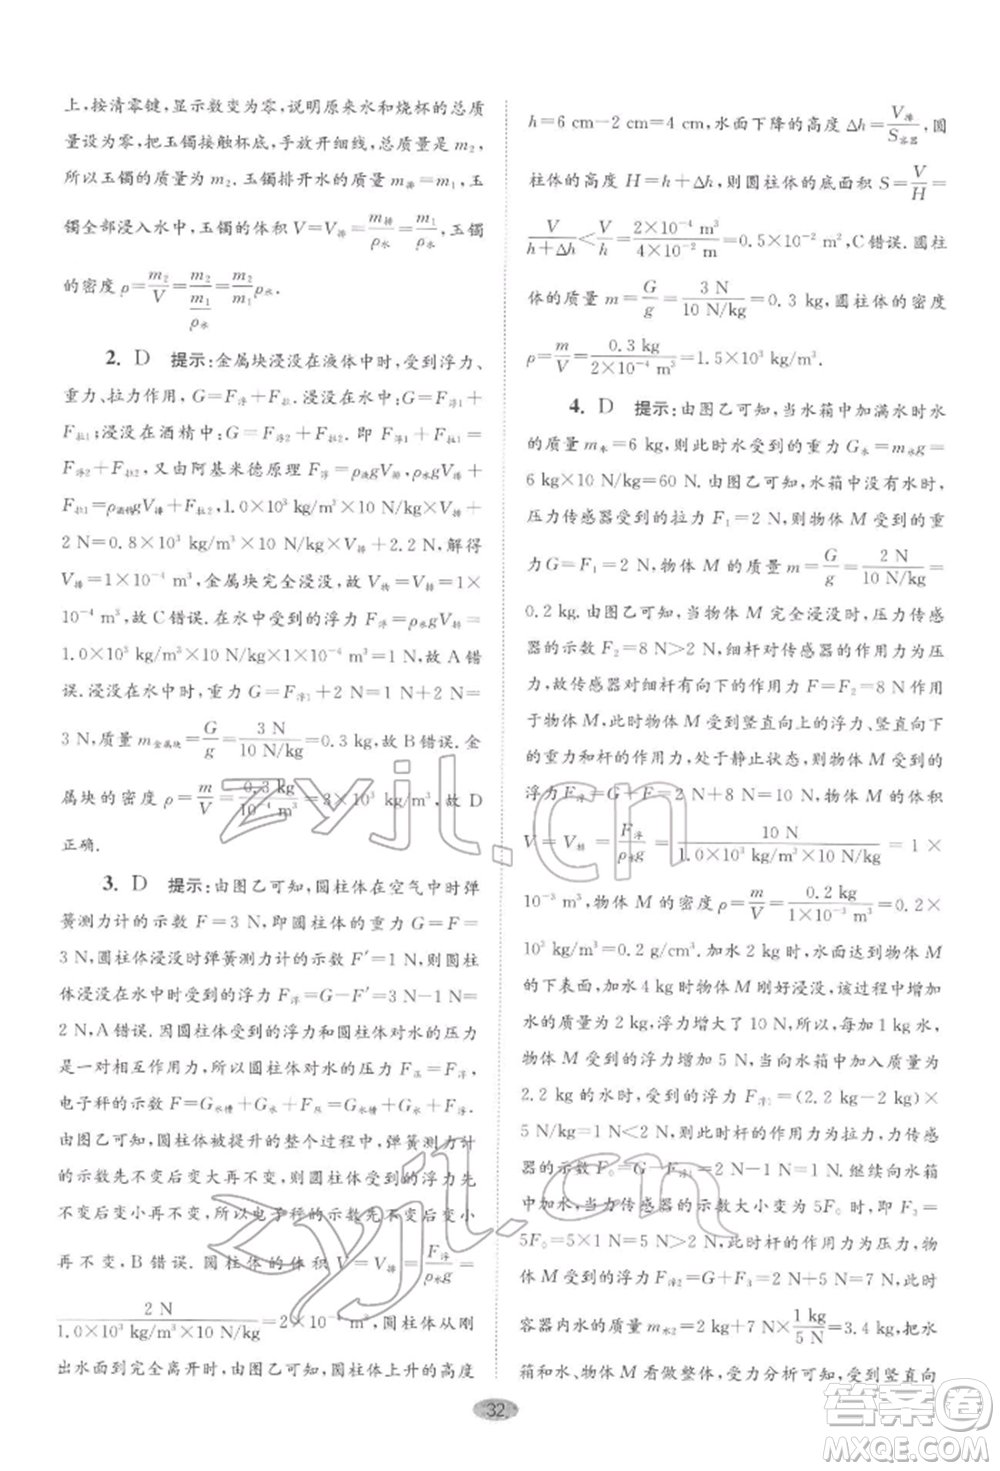 上,按清零键,显示数变为零,说明原来水和烧杯的总质
量设为零,将玉镯接触杯底,手放开细线,总质量是 m₂,
所以玉镯的质量为 m₂. 玉镯排开水的质量 m排=m₁,玉
镯全部浸入水中,玉镯的体积 V=V排=m排/ρ水=m₁/ρ水,玉镯
的密度 ρ=m₂/V=m₂/(m₁/ρ水)=m₂/m₁ρ水.
2. D 提示:金属块浸没在液体中时,受到浮力、
重力、拉力作用,G=F浮+F拉. 浸没在水中时:G=F浮1+
F拉1;浸没在酒精中:G=F浮2+F拉2. 即 F浮1+F拉1=
F浮2+F拉2,又由阿基米德原理 F浮=ρ液gV排,ρ水gV排+
F拉1=ρ酒精gV排+F拉2,1.0×10³ kg/m³×10 N/kg×V排+
2 N=0.8×10³ kg/m³×10 N/kg×V排+2.2 N,解得
V排=1×10⁻⁴ m³,金属块完全浸没,故 V物=V排=1×
10⁻⁴ m³,故 C错误. 在水中时受到的浮力 F浮=ρ水gV排=
1.0×10³ kg/m³×10 N/kg×1×10⁻⁴ m³=1 N,故 A 错
误. 浸没在水中时,受到的重力 G=F浮1+2 N=1 N+2 N=
3 N,质量 m金属块=G/g=3 N/10 N/kg=0.3 kg,故 B 错误. 金
属块的密度 ρ=m/V=0.3 kg/10⁻⁴ m³=3×10³ kg/m³,故 D
正确.
3. D 提示:由图乙可知,圆柱体在空气中时弹
簧测力计的示数 F=3 N,即圆柱体的重力 G=F=
3 N,圆柱体浸没时弹簧测力计的示数 F′=1 N,则圆柱
体浸没在水中时受到的浮力 F浮=G-F′=3 N-1 N=
2 N,A 错误. 因圆柱体受到的浮力和圆柱体对水的压力
是一对相互作用力,所以圆柱体对水的压力 F压=F浮,
电子秤的示数 F=G水槽+G水+F压=G水槽+G水+F浮.
由图乙可知,圆柱体被提升的整个过程中,弹簧测力计
的示数先不变后变大再不变,则圆柱体受到的浮力先
不变后变小再不变,所以电子秤的示数先不变后变小
再不变,B 错误. 圆柱体的体积 V=V排=F浮/ρ水g=
2 N/1.0×10³ kg/m³×10 N/kg=2×10⁻⁴ m³,圆柱体从刚
出水面到完全离开时,由图乙可知,圆柱体上升的高度
h=6 cm-2 cm=4 cm,水面下降的高度 Δh=V排/S容器,圆
柱体的高度 H=h+Δh,则圆柱体的底面积 S=V/H=
V/h+Δh<V/h=2×10⁻⁴ m³/4×10⁻² m=0.5×10⁻² m²,C错误. 圆柱
体的质量 m=G/g=3 N/10 N/kg=0.3 kg,圆柱体的密度
ρ=m/V=0.3 kg/2×10⁻⁴ m³=1.5×10³ kg/m³.
4. D 提示:由图乙可知,当水箱中加满水时水
的质量 m水=6 kg,此时水受到的重力 G水=m水g=
6 kg×10 N/kg=60 N. 由图乙可知,水箱中没有水时,
压力传感器受到的拉力 F₁=2 N,则物体 M 受到的重
力G=F₁=2 N,物体 M 的质量 m=G/g=2 N/10 N/kg=
0.2 kg. 由图乙可知,当物体 M 完全浸没时,压力传感
器的示数 F₂=8 N>2 N,细杆对传感器的作用力向
上,故传感器对细杆有向下的作用力 F=F₂=8 N 作用
于物体 M,此时物体 M 受到竖直向上的浮力、竖直向下
的重力和杆的作用力,处于静止状态. 则物体 M 受到的
浮力 F浮=G+F=2 N+8 N=10 N,物体 M 的体积
V=V排=F浮/ρ水g=10 N/1.0×10³ kg/m³×10 N/kg=1×
10⁻³ m³,物体 M 的密度 ρ=m/V=0.2 kg/1×10⁻³ m³=0.2×
10³ kg/m³=0.2 g/cm³. 加水 2 kg 时,水面达到物体 M
的下表面,加水 4 kg 时物体 M 刚好浸没,该过程中加
水的质量为 2 kg,浮力增大了 10 N,所以,每加 1 kg 水,
物体 M 受到的浮力增大 5 N,当向水箱中加入质量为
2.2 kg 的水时,受到的浮力 F浮1=(2.2 kg-2 kg)×
5 N/kg=1 N<2 N,此时杆的作用力为拉力,力传感
器的示数 F₀=G-F浮1=2 N-1 N=1 N. 继续向水箱
中加水,当力传感器的示数大小变为 5F₀ 时,即 F₃=
5F₀=5×1 N=5 N>2 N,此时杆的作用力为压力,物
体受到的浮力 F浮2=G+F₃=2 N+5 N=7 N,此时
容器内水的质量 m水2=2 kg+7 N×1 kg/5 N=3.4 kg,把水
箱和水、物体 M 看做整体,受力分析可知,受到竖直向
32
zyjl.cn
zyjl.cn
答案圈
MXQE.COM